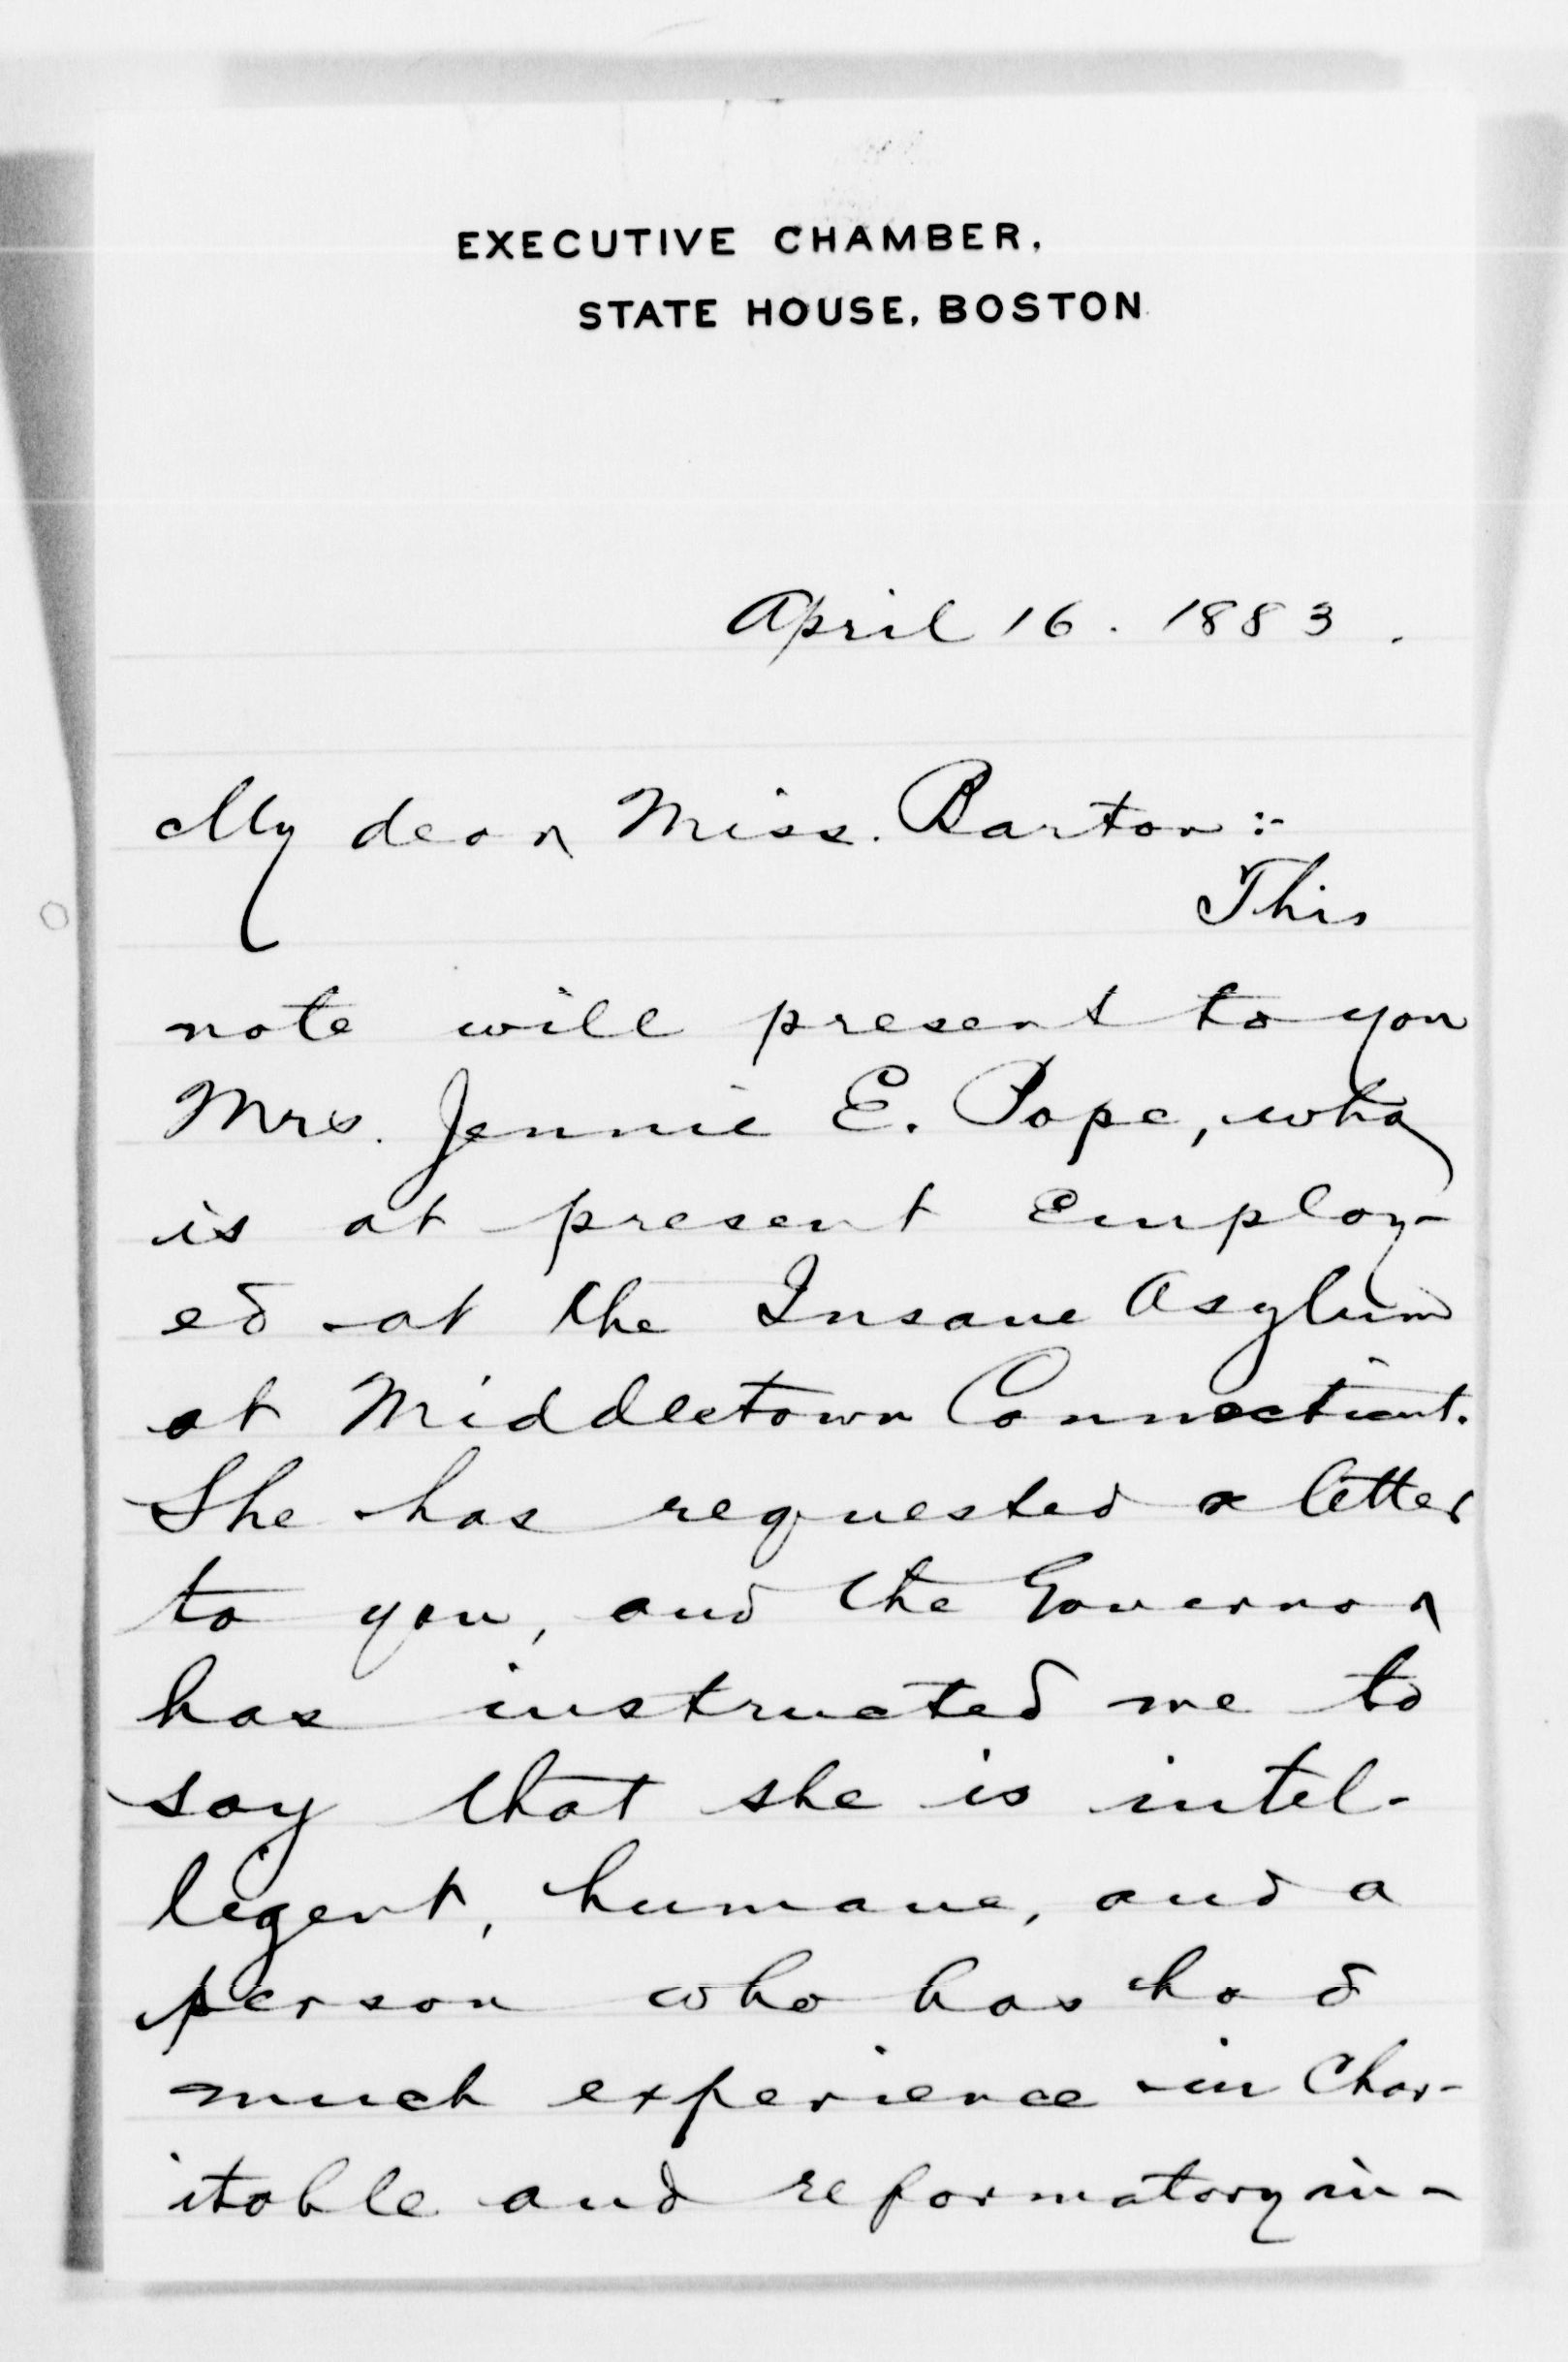 EXECUTIVE CHAMBER,
STATE HOUSE, BOSTON
April 16. 1883.
My dear Miss. Barton:-
This
note will present to you
Mrs. Jennie E. Pope, who
is at present employ-
ed at the Insane Asylum
at Middletown Connecticut.
She has requested a letter
to you, and the Governor
has instructed me to
say that she is intel-
ligent, humane, and a
person who has had
much experience in Char-
itable and reformatory in-